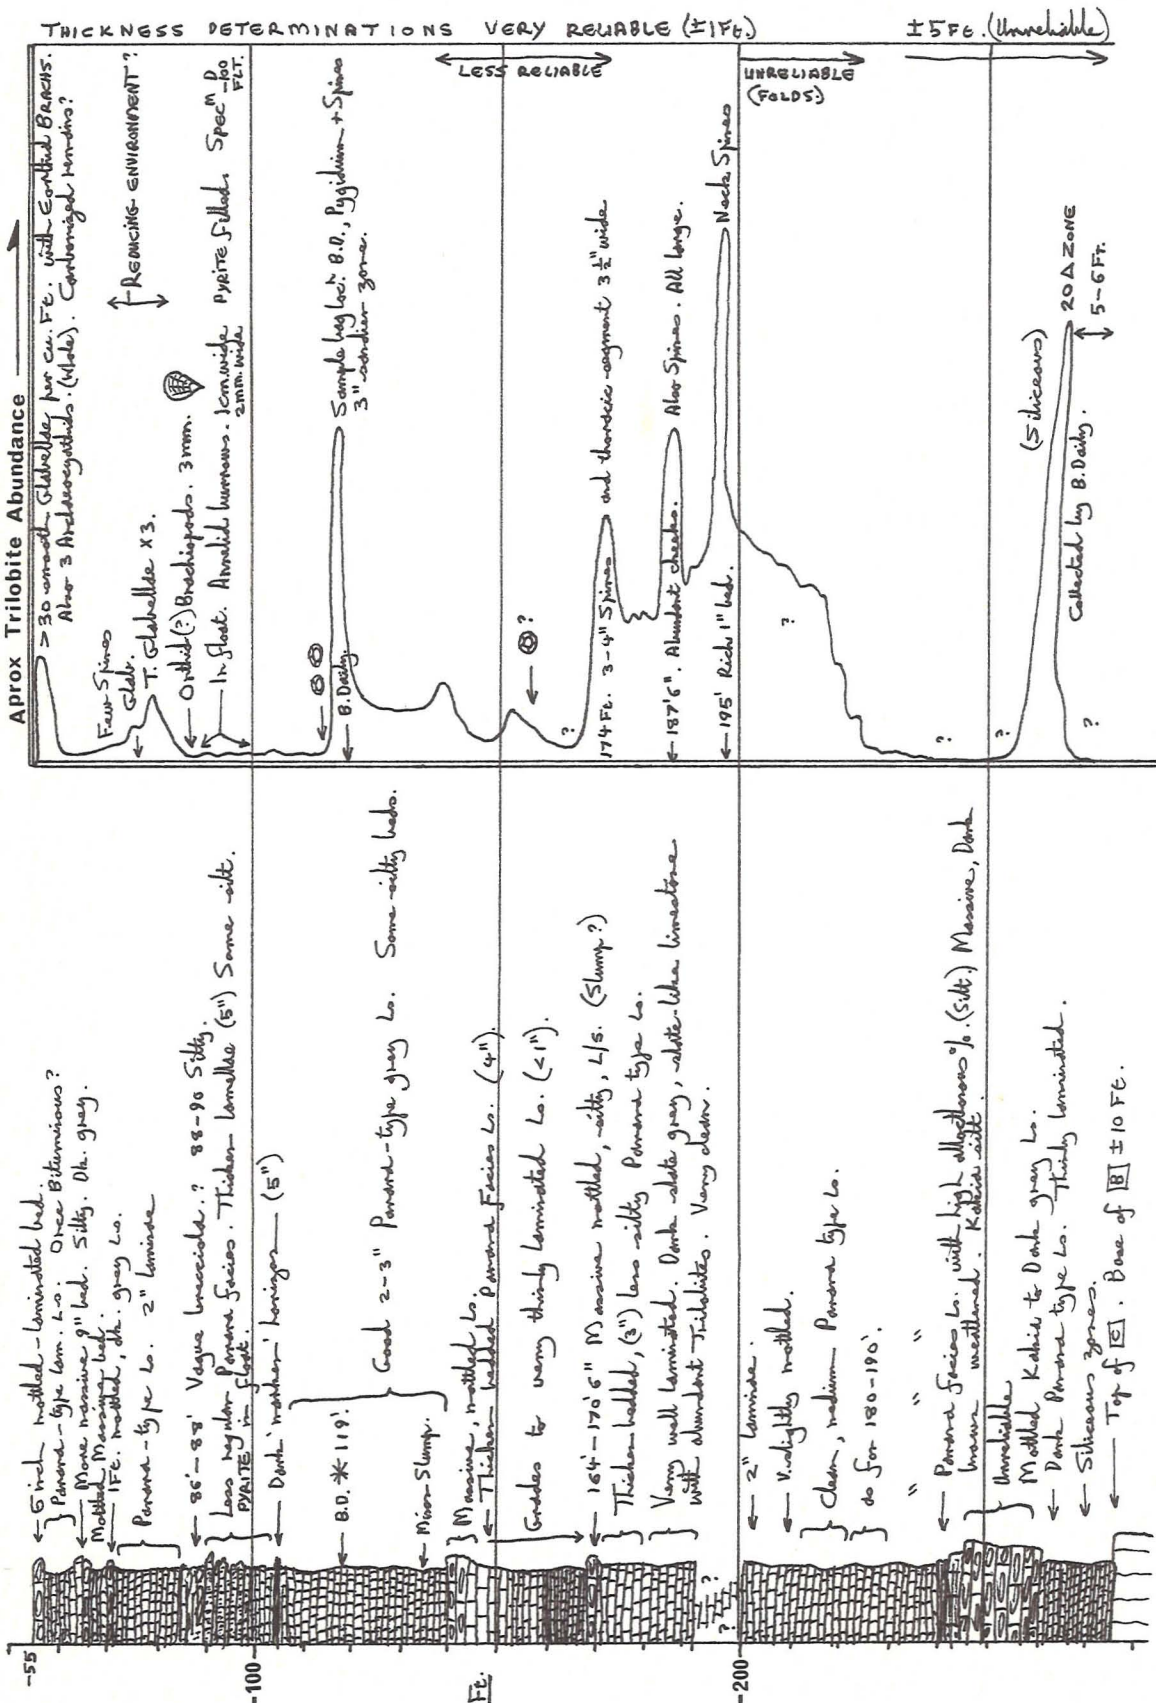 Aprox Trilobite Abundance
THICKNESS DETERMINATIONS VERY RELIABLE (±1Ft.)
±5Ft. (Unreliable)
LESS RELIABLE
UNRELIABLE
(FOLDS.)
>30 smooth Glabellae per cu. Ft. with Brachs.
Also 3 Archaeocyathids. (Whole). Carbonized remains?
REDUCING ENVIRONMENT?
Few Spines
Glab.
T. Glabellae x3.
Orthid(?) Brachiopods. 3mm.
In float. Annelid burrows. 1cm.wide PYRITE filled. SpecM D
2mm.wide
-100
FLT.
Sample bag loc: B.D., Pygidium + Spines
3" sandier zone.
B.Daily.
?
?
174Ft. 3-4" Spines and thoracic segment 3½" wide
187'6". Abundant cheeks. Also Spines. All large.
195' Rich 1" bed. Neck Spines
?
?
?
(Siliceous)
20 Δ ZONE
5-6 Ft.
Collected by B.Daily.
?
-55
-100
Ft.
-200
6 inch mottled-laminated bed.
Parara-type lam. Ls. Once Bituminous?
More massive 9" bed. Silty. Dk. grey.
Mottled Massive bed.
1Ft. mottled, dk. grey Ls.
Parara-type Ls. 2" laminae
86'-88' Vague brecciola.? 88-90 Silty.
Less regular Parara facies. Thicker lamellae (5") Some silt.
PYRITE in float.
Dark 'marker' horizon (5")
B.D. * 119'.
Good 2-3" Parara-type grey Ls. Some silty beds.
Minor Slump.
Massive, mottled Ls.
Thicker bedded Parara Facies Ls. (4").
Grades to very thinly laminated Ls. (<1").
164'-170'6" Massive mottled, silty, L/S. (Slump?)
Thicker bedded, (3") less silty Parara type Ls.
Very well laminated. Dark slate grey, slate-like limestone
with abundant Trilobites. Very clean.
?
?
2" laminae.
V. slightly mottled.
Clean, medium Parara type Ls.
as for 180-190'.
" " " "
Parara facies Ls. with high %. (Silt.) Massive, Dark
brown weathered. Kakhi silt.
Unreliable
Mottled Kakhi to Dark grey Ls.
Dark Parara type Ls. Thinly laminated.
Siliceous zones.
Top of C. Base of B ±10 Ft.